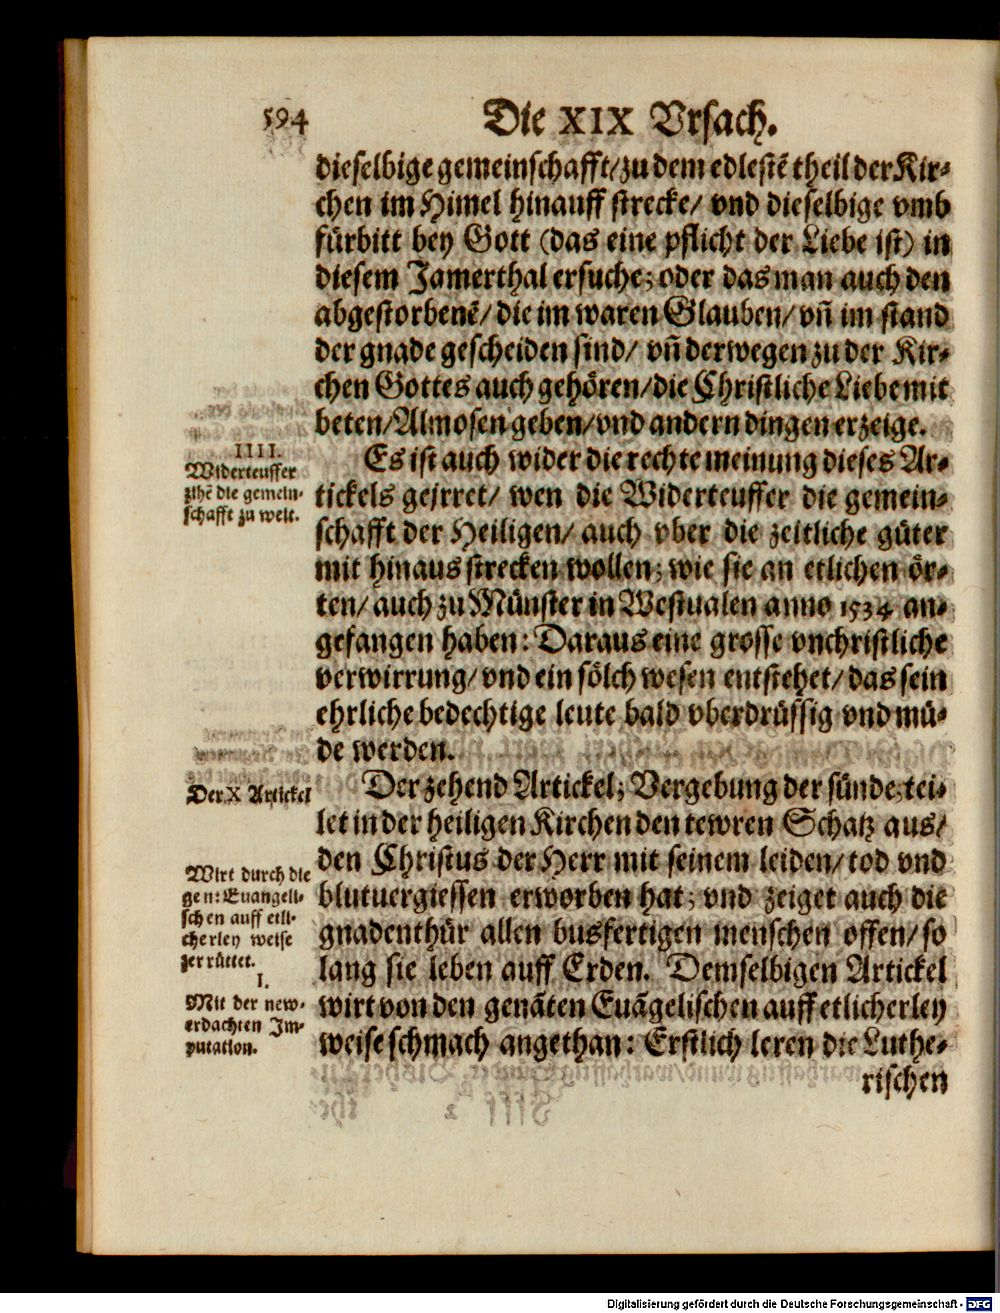 594
Die XIX Vrsach.
dieselbige gemeinschafft/zu dem edlestẽ theil der Kir-
chen im Himel hinauff strecke/ vnd dieselbige vmb
fürbitt bey Gott (das eine pflicht der Liebe ist) in
diesem Jamerthal ersuche; oder das man auch den
abgestorbenẽ/ die im waren Glauben/ vñ im stand
der gnade gescheiden sind/ vñ derwegen zu der Kir-
chen Gottes auch gehören/die Christliche Liebe mit
beten/Almosen geben/vnd andern dingen erzeige.
IIII.
Widerteuffer
zihẽ die gemein-
schafft zu weit.
Es ist auch wider die rechte meinung dieses Ar-
tickels gejrret/ wen die Widerteuffer die gemein-
schafft der Heiligen/ auch vber die zeitliche güter
mit hinaus strecken wollen; wie sie an etlichen ör-
ten/ auch zu Münster in Westualen anno 1534 an-
gefangen haben: Daraus eine grosse vnchristliche
verwirrung/ vnd ein sölch wesen entstehet/ das sein
ehrliche bedechtige leute bald vberdrüssig vnd mü-
de werden.
Der X Artickel
Der zehend Artickel; Vergebung der sünde; tei-
let in der heiligen Kirchen den tewren Schatz aus/
den Christus der Herr mit seinem leiden/ tod vnd
blutuergiessen erworben hat; vnd zeiget auch die
gnadenthür allen busfertigen menschen offen/ so
lang sie leben auff Erden. Demselbigen Artickel
wirt von den genãten Euãgelischen auff etlicherley
weise schmach angethan: Erstlich leren die Luthe-
Wirt durch die
gen: Euangeli-
schen auff etli-
cherley weise
zerrüttet.
I.
Mit der new-
erdachten Im-
putation.
rischen
Digitalisierung gefördert durch die Deutsche Forschungsgemeinschaft - DFG